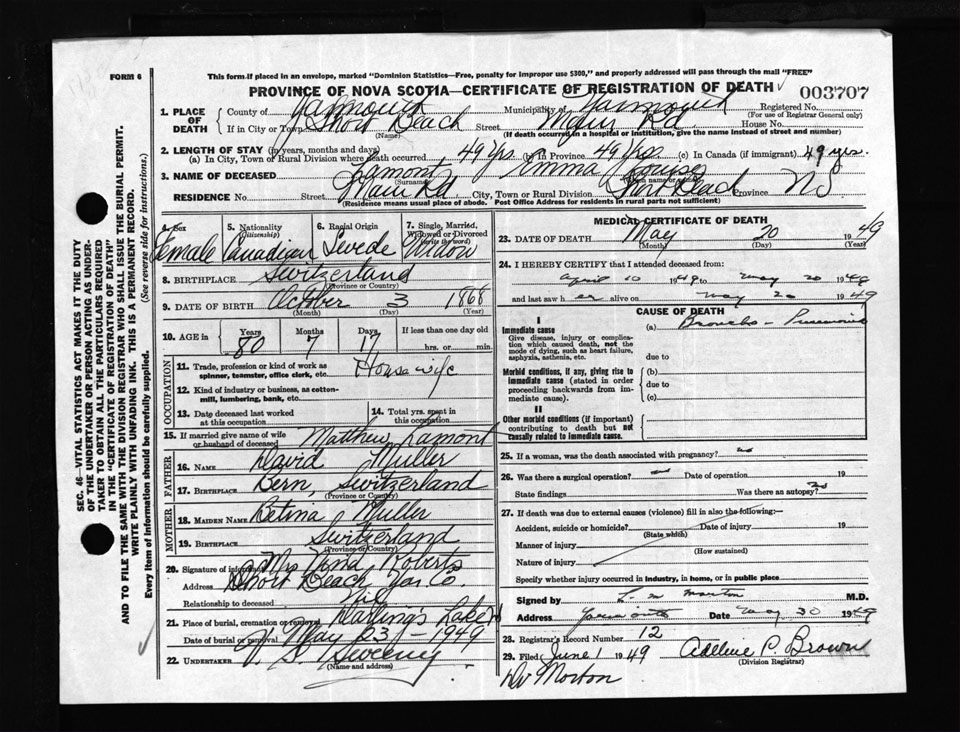 FORM 6
This form if placed in an envelope, marked "Dominion Statistics—Free, penalty for improper use $300," and properly addressed will pass through the mail "FREE"
PROVINCE OF NOVA SCOTIA—CERTIFICATE OF REGISTRATION OF DEATH 003707
1. PLACE OF DEATH County of Yarmouth Municipality of Yarmouth Registered No.
(For use of Registrar General only)
If in City or Town Short Beach Street Main Rd House No.
(Name) (If death occurred in a hospital or institution, give the name instead of street and number)
2. LENGTH OF STAY (in years, months and days)
(a) In City, Town or Rural Division where death occurred 49 Yrs (b) In Province 49 Yrs (c) In Canada (if immigrant) 49 yrs.
3. NAME OF DECEASED Lamont Emma Louise
(Surname)
RESIDENCE No. Street Main Rd City, Town or Rural Division Short Beach Province NS
(Residence means usual place of abode. Post Office Address for residents in rural parts not sufficient)
4. Sex Female
5. Nationality (Citizenship) Canadian
6. Racial Origin Swede
7. Single, Married, Widowed or Divorced (write the word) Widow
8. BIRTHPLACE Switzerland
(Province or Country)
9. DATE OF BIRTH October 3 1868
(Month) (Day) (Year)
10. AGE in Years Months Days If less than one day old
80 7 17 hrs. or min.
OCCUPATION
11. Trade, profession or kind of work as spinner, teamster, office clerk, etc. Housewife
12. Kind of industry or business, as cotton-mill, lumbering, bank, etc.
13. Date deceased last worked at this occupation
14. Total yrs. spent in this occupation
15. If married give name of wife or husband of deceased Matthew Lamont
FATHER
16. NAME David Muller
17. BIRTHPLACE Bern, Switzerland
(Province or Country)
MOTHER
18. MAIDEN NAME Betina Muller
19. BIRTHPLACE Switzerland
(Province or Country)
20. Signature of informant Mrs Roberts
Address Short Beach Yar. Co.
Relationship to deceased
21. Place of burial, cremation or removal Darling's Lake
Date of burial or removal May 23 - 1949
22. UNDERTAKER V. S. Sweeny
(Name and address)
MEDICAL CERTIFICATE OF DEATH
23. DATE OF DEATH May 20 1949
(Month) (Day) (Year)
24. I HEREBY CERTIFY that I attended deceased from:
April 10 1949 to May 20 1949
and last saw her alive on May 20 1949
CAUSE OF DEATH
I
Immediate cause
Give disease, injury or complication which caused death, not the mode of dying, such as heart failure, asphyxia, asthenia, etc.
(a) Broncho-Pneumonia
due to
Morbid conditions, if any, giving rise to immediate cause (stated in order proceeding backwards from immediate cause).
(b)
due to
(c)
II
Other morbid conditions (if important) contributing to death but not causally related to immediate cause.
25. If a woman, was the death associated with pregnancy? no
26. Was there a surgical operation? no Date of operation 19
State findings Was there an autopsy? no
27. If death was due to external causes (violence) fill in also the following:—
Accident, suicide or homicide? Date of injury 19
(State which)
Manner of injury
(How sustained)
Nature of injury
Specify whether injury occurred in industry, in home, or in public place
Signed by L. M. Morton M.D.
Address Yarmouth Date May 30 1949
28. Registrar's Record Number 12
29. Filed June 1 1949 Adeline P. Brown
(Division Registrar)
Dr Morton
SEC. 46—VITAL STATISTICS ACT MAKES IT THE DUTY
OF THE UNDERTAKER OR PERSON ACTING AS UNDER-
TAKER TO OBTAIN ALL THE PARTICULARS REQUIRED
IN THE "CERTIFICATE OF REGISTRATION OF DEATH"
AND TO FILE THE SAME WITH THE DIVISION REGISTRAR WHO SHALL ISSUE THE BURIAL PERMIT.
WRITE PLAINLY WITH UNFADING INK. THIS IS A PERMANENT RECORD.
Every item of information should be carefully supplied. (See reverse side for instructions.)